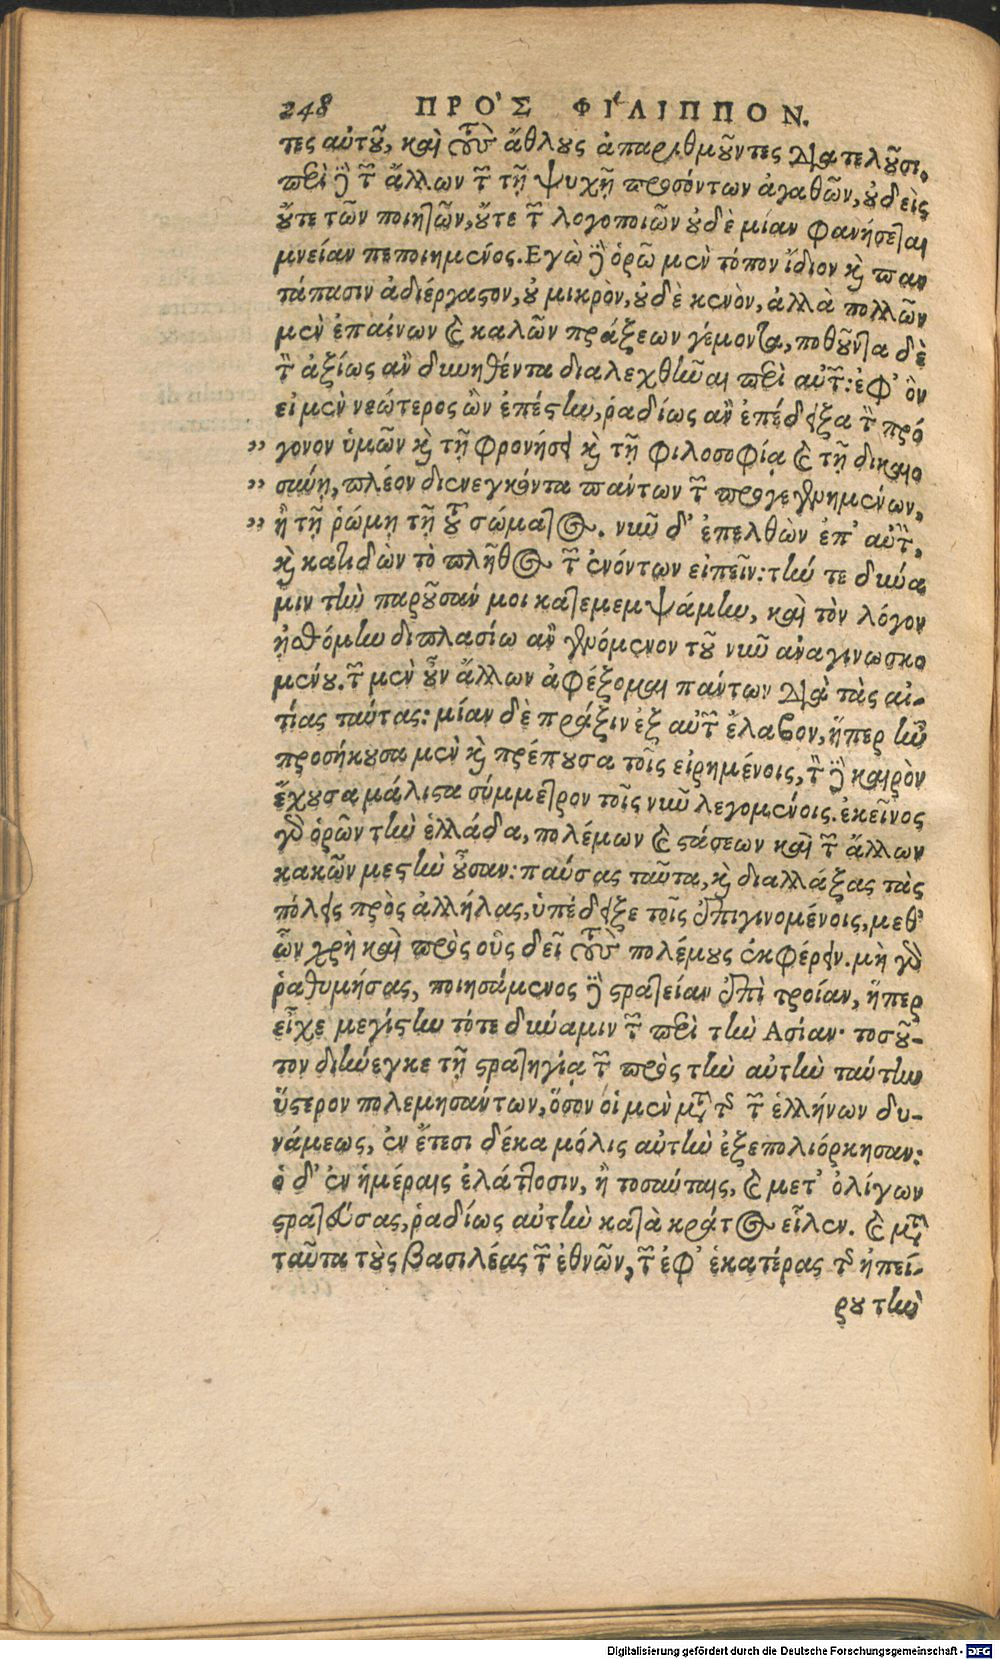 248 ΠΡΟ᾽Σ ΦΙ´ΛΙΠΠΟΝ.
τες αὐτοῦ, καὶ τοὺς ἄθλους ἀπαριθμοῦντες διατελοῦσι.
περὶ δὲ τῶν ἄλλων τῶν τῇ ψυχῇ προσόντων ἀγαθῶν, οὐδεὶς
οὔτε τῶν ποιητῶν, οὔτε τῶν λογοποιῶν οὐδὲ μίαν φανήσεται
μνείαν πεποιημένος. Εγὼ δὲ ὁρῶ μὲν τόπον ἴδιον καὶ παν
τάπασιν ἀδιέργαστον, οὐ μικρὸν, οὐδὲ κενὸν, ἀλλὰ πολλῶν
μὲν ἐπαίνων καὶ καλῶν πράξεων γέμοντα, ποθοῦντα δὲ
τὸν ἀξίως ἂν δυνηθέντα διαλεχθῆναι περὶ αὐτῶν: ἐφ᾽ ὃν
εἰ μὲν νεώτερος ὢν ἐπέστην, ῥαδίως ἂν ἐπέδειξα τὸν πρό
" γονον ὑμῶν καὶ τῇ φρονήσει καὶ τῇ φιλοσοφίᾳ καὶ τῇ δικαιο
" σύνῃ, πλέον διενεγκόντα πάντων τῶν προγεγενημένων,
" ἢ τῇ ῥώμῃ τῇ τοῦ σώματος. νῦν δ᾽ ἐπελθὼν ἐπ᾽ αὐτὸν,
καὶ κατιδὼν τὸ πλῆθος τῶν ἐνόντων εἰπεῖν: τήν τε δύνα
μιν τὴν παροῦσάν μοι κατεμεμψάμην, καὶ τὸν λόγον
ᾐσθόμην διπλασίω ἂν γενόμενον τοῦ νῦν ἀναγινωσκο
μένου. τῶν μὲν οὖν ἄλλων ἀφέξομαι πάντων διὰ τὰς αἰ-
τίας ταύτας: μίαν δὲ πράξιν ἐξ αὐτῶν ἔλαβον, ἥπερ ἦν
προσήκουσα μὲν καὶ πρέπουσα τοῖς εἰρημένοις, τὸν δὲ καιρὸν
ἔχουσα μάλιστα σύμμετρον τοῖς νῦν λεγομένοις. ἐκεῖνος
γὰρ ὁρῶν τὴν ἑλλάδα, πολέμων καὶ στάσεων καὶ τῶν ἄλλων
κακῶν μεστὴν οὖσαν: παύσας ταῦτα, καὶ διαλλάξας τὰς
πόλεις πρὸς ἀλλήλας, ὑπέδειξε τοῖς ἐπιγινομένοις, μεθ᾽
ὧν χρὴ καὶ πρὸς οὓς δεῖ τοὺς πολέμους ἐκφέρειν. μὴ γὰρ
ῥαθυμήσας, ποιησάμενος δὲ στρατείαν ἐπὶ τροίαν, ἥπερ
εἶχε μεγίστην τότε δύναμιν τῶν περὶ τὴν Ασίαν· τοσοῦ-
τον διήνεγκε τῇ στρατηγίᾳ τῶν πρὸς τὴν αὐτὴν ταύτην
ὕστερον πολεμησάντων, ὅσον οἱ μὲν μετὰ τῆς τῶν ἑλλήνων δυ-
νάμεως, ἐν ἔτεσι δέκα μόλις αὐτὴν ἐξεπολιόρκησαν:
ὁ δ᾽ ἐν ἡμέραις ἐλάττοσιν, ἢ τοσαύταις, καὶ μετ᾽ ὀλίγων
στρατεύσας, ῥαδίως αὐτὴν κατὰ κράτος εἷλεν. καὶ μετὰ
ταῦτα τοὺς βασιλέας τῶν ἐθνῶν, τῶν ἐφ᾽ ἑκατέρας τῆς ἠπεί-
ρου τὴν
Digitalisierung gefördert durch die Deutsche Forschungsgemeinschaft - DFG